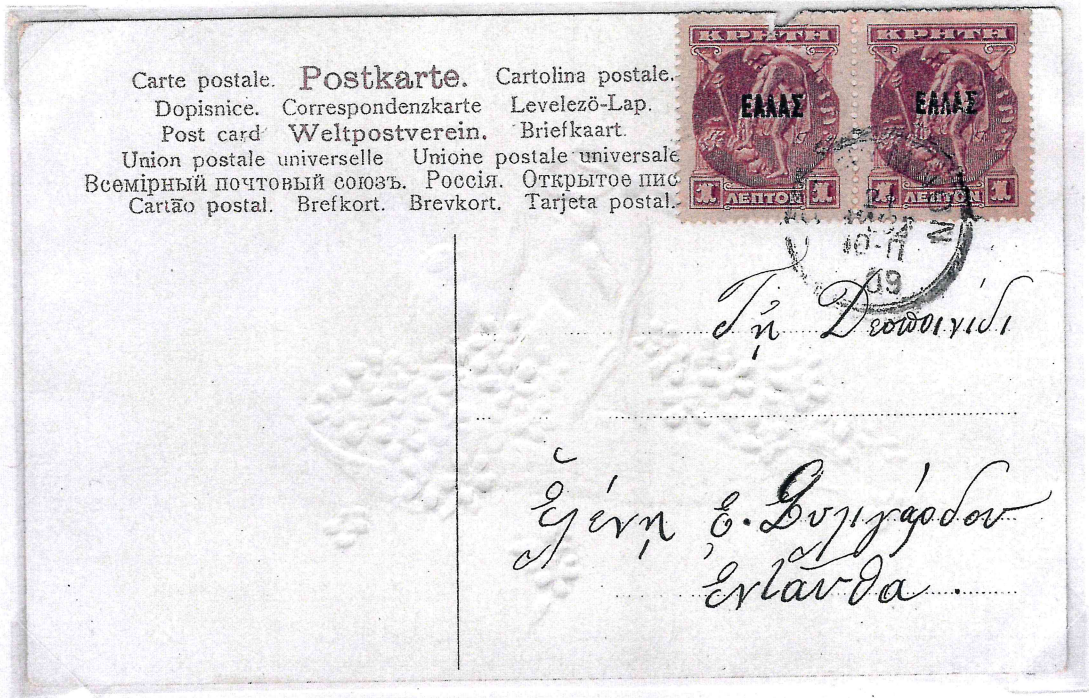 Carte postale. Postkarte. Cartolina postale.
Dopisnice. Correspondenzkarte Levelezö-Lap.
Post card Weltpostverein. Briefkaart.
Union postale universelle Unione postale universale
Всемірный почтовый союзъ. Россія. Открытое пис
Cartão postal. Brefkort. Brevkort. Tarjeta postal.
ΚΡΗΤΗ ΚΡΗΤΗ
ΕΛΛΑΣ ΕΛΛΑΣ
1 ΛΕΠΤΟΝ 1 1 ΛΕΠΤΟΝ 1
10-Π
09
Τῇ Δεσποινίδι
Ἑλένῃ Ε.
Ενταῦθα.